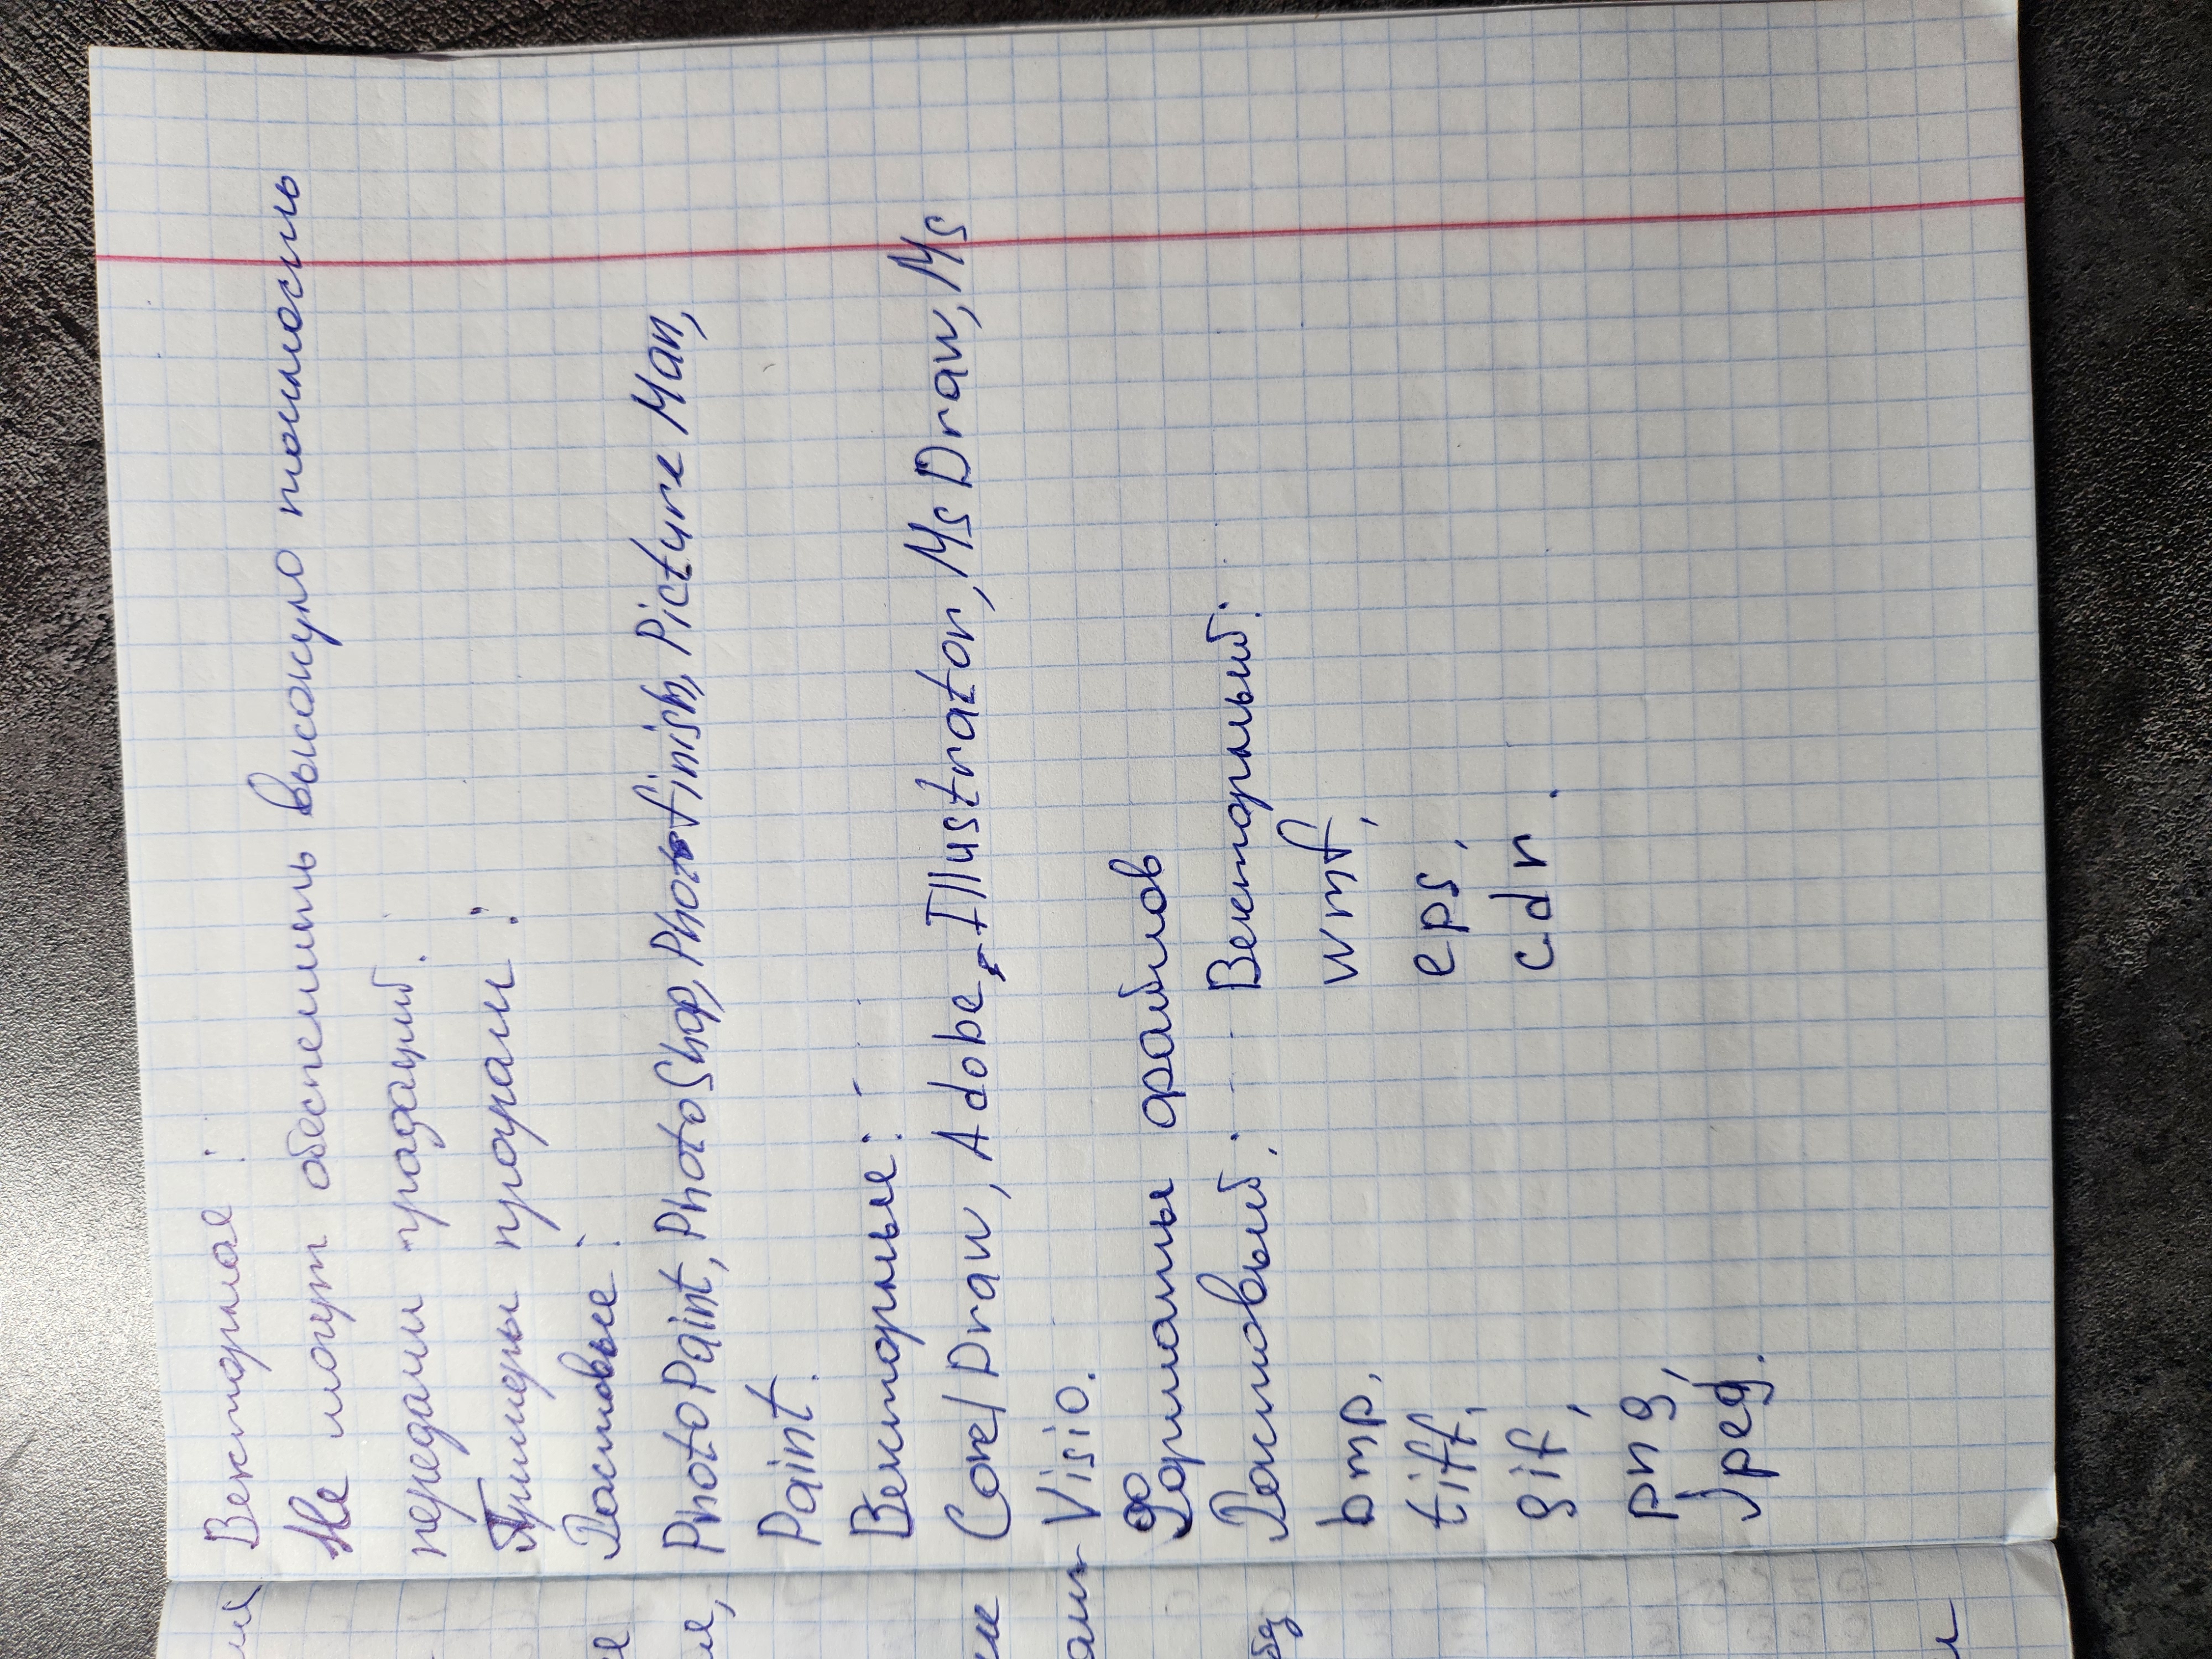 Векторная:
Не могут обеспечить высокую точность
передачи градаций.
Примеры програм:
Растовые:
PhotoPaint, PhotoShop, Photofinish, Picture Man,
Paint.
Векторные:
Corel Draw, Adobe Illustrator, Ms Draw, Ms
Visio.
Форматы файлов
Растовый: Векторный:
bmp, wmf,
tiff, eps,
gif, cdr.
png,
Jpeg.